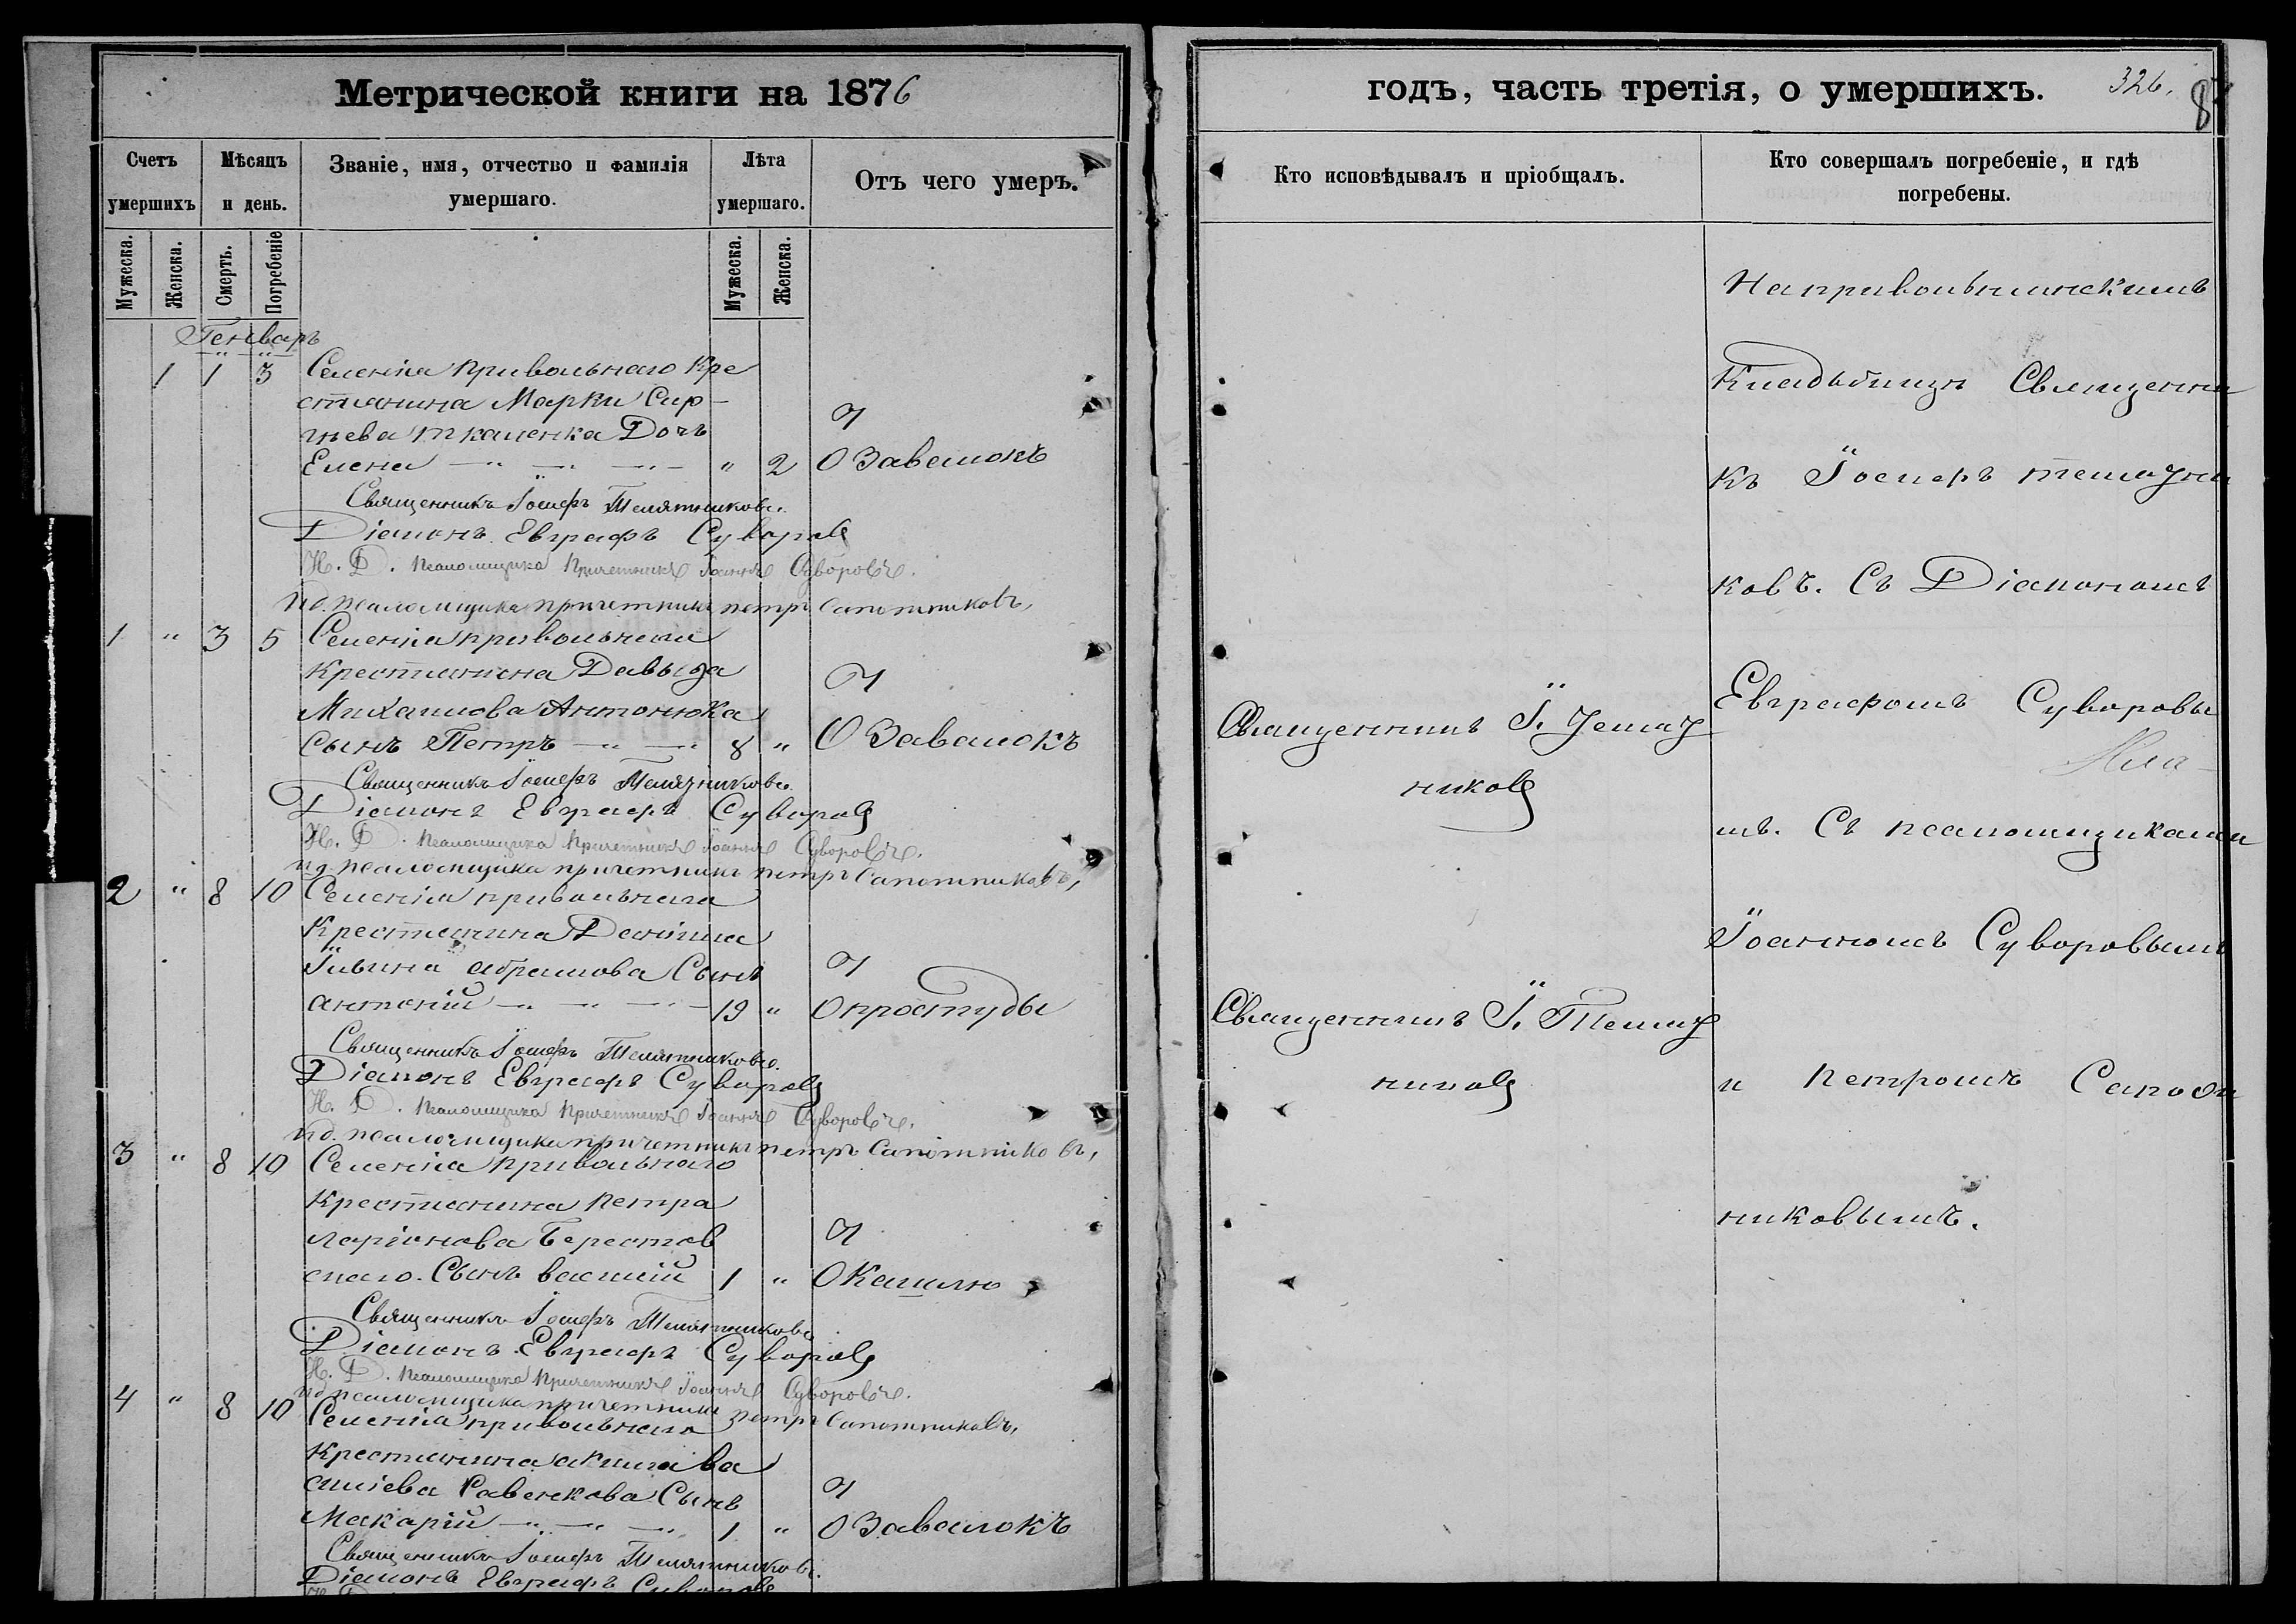 Метрической книги на 1876
Счетъ умершихъ
Мѣсяцъ и день.
Званіе, имя, отчество и фамилія умершаго.
Лѣта умершаго.
Отъ чего умеръ.
Мужеска.
Женска.
Смерть.
Погребеніе
Мужеска.
Женска.
Генваръ
1 1 3 Селенія Привольнаго Кре
стянина Марки Сир-
гѣева ткаленка Дочъ
Елена " 2 О Завалокъ
Священникъ Іосифъ Телятниковъ.
Діаконъ Евграфъ Суворовъ
И. Д. Псаломщика Причетникъ Іоаннъ Суворовъ.
ид. псаломщика причетникъ петръ Сапотниковъ,
1 " 3 5 Селенія привольнаго
Крестянина Давыда
Михаилова Антонюка
Сынъ Петръ 8 " О Завалокъ
Священникъ Іосифъ Телятниковъ.
Діаконъ Евграфъ Суворовъ
И. Д. Псаломщика Причетникъ Іоаннъ Суворовъ.
ид псаломщика причетникъ петръ Сапотниковъ,
2 " 8 10 Селенія привольнаго
Крестянина Даніила
абрамова Сынъ
антоній 19 " О простуды
Священникъ Іосифъ Телятниковъ.
Діаконъ Евграфъ Суворовъ
И. Д. Псаломщика Причетникъ Іоаннъ Суворовъ.
ид. псаломщика причетникъ петръ Сапотниковъ,
3 " 8 10 Селенія привольнаго
Крестианина петра
ларіонова Берестов
скаго. Сынъ василій 1 " О Кашлю
Священникъ Іосифъ Телятниковъ
Діаконъ Евграфъ Суворовъ
И. Д. Псаломщика Причетникъ Іоаннъ Суворовъ.
ид псаломщика причетникъ петръ Сапотниковъ,
4 " 8 10 Селенія привольнаго
Крестианина акима Ва
силева Равенкова Сынъ
Макарій 1 " О Завалокъ
Священникъ Іосифъ Телятниковъ.
Діаконъ Евграфъ Суворовъ
годъ, часть третія, о умершихъ.
326.
8
Кто исповѣдывалъ и пріобщалъ.
Кто совершалъ погребеніе, и гдѣ погребены.
Священникъ І. Теляч
никовъ
Священникъ І. Теляч
никовъ
На привольнинскимъ
Кладбищи Священни
къ Іосифъ телячни
ковъ. Съ Діакономъ
Евграфомъ Суворовы
мъ. Съ псаломщиками
Іоанномъ Суворовымъ
и Петромъ Сапотн
никовымъ.